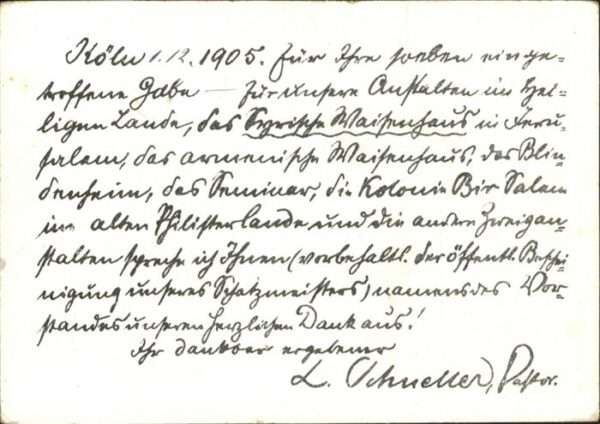 Köln 1.12.1905. Für Ihre soeben einge-
troffene Gabe — für unsere Anstalten im Hei-
ligen Lande, das Syrische Waisenhaus in Jeru-
salem, das armenische Waisenhaus, das Blin-
denheim, das Seminar, die Kolonie Bir Salem
im alten Philisterlande und die andern Zweigan-
stalten spreche ich Ihnen (vorbehaltl. der öffentl. Beschei-
nigung unseres Schatzmeisters) namens des Vor-
standes unseren herzlichen Dank aus!
Ihr dankbar ergebener
L. Schneller, Pastor.